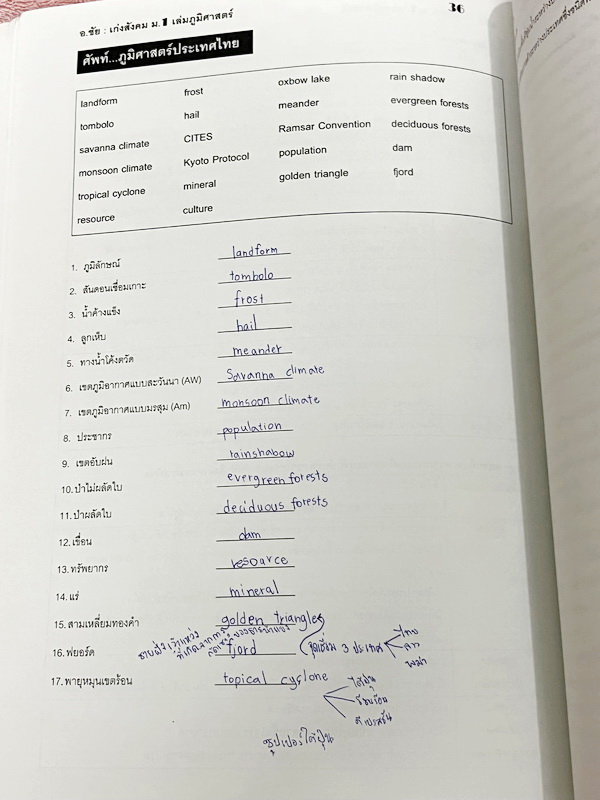 อ.ชัย : เก่งสังคม ม.1 เล่มภูมิศาสตร์ 36
ศัพท์...ภูมิศาสตร์ประเทศไทย
landform frost oxbow lake rain shadow
tombolo hail meander evergreen forests
savanna climate CITES Ramsar Convention deciduous forests
monsoon climate Kyoto Protocol population dam
tropical cyclone mineral golden triangle fjord
resource culture
1. ภูมิลักษณ์ landform
2. สันดอนเชื่อมเกาะ tombolo
3. น้ำค้างแข็ง frost
4. ลูกเห็บ hail
5. ทางน้ำโค้งตวัด meander
6. เขตภูมิอากาศแบบสะวันนา (AW) Savanna climate
7. เขตภูมิอากาศแบบมรสุม (Am) monsoon climate
8. ประชากร population
9. เขตอับฝน rainshabow
10. ป่าไม่ผลัดใบ evergreen forests
11. ป่าผลัดใบ deciduous forests
12. เขื่อน dam
13. ทรัพยากร resource
14. แร่ mineral
15. สามเหลี่ยมทองคำ golden triangle
ชายฝั่งเว้าแหว่ง
ที่เกิดจากการ
16. ฟยอร์ด fjord จุดเชื่อม 3 ประเทศ ไทย
ลาว
พม่า
17. พายุหมุนเขตร้อน topical cyclone ไต้ฝุ่น
โซนร้อน
ดีเปรสชัน
ซุปเปอร์ไต้ฝุ่น